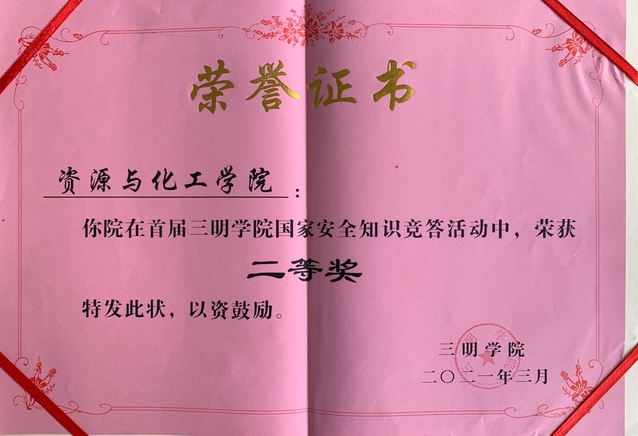 荣誉证书
资源与化工学院：
你院在首届三明学院国家安全知识竞答活动中，荣获
二等奖
特发此状，以资鼓励。
三明学院
二〇二一年三月